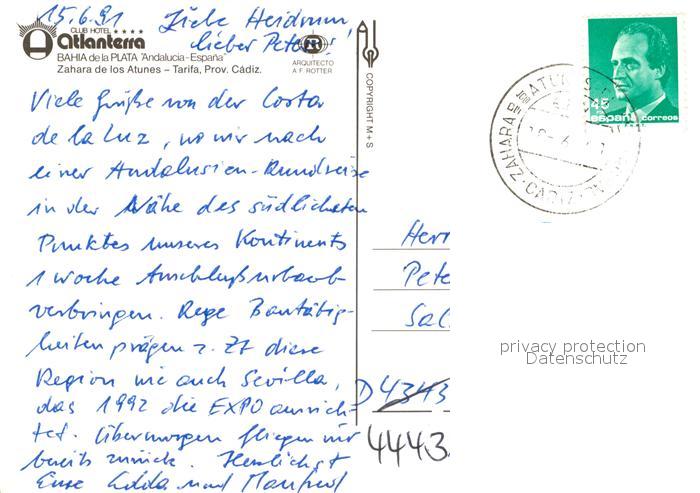 15.6.91 Liebe Heidrun,
lieber Peter.
CLUB HOTEL ★★★★
atlanterra
BAHIA de la PLATA "Andalucia-España"
Zahara de los Atunes – Tarifa, Prov. Cádiz.
ARQUITECTO
A. F. ROTTER
COPYRIGHT M + S
Viele Grüße von der Costa
de la Luz, wo wir nach
einer Andalusien-Rundreise
in der Nähe des südlichsten
Punktes unseres Kontinents
1 Woche Anschlußurlaub
verbringen. Rege Bautätig-
keiten prägen z. Zt diese
Region wie auch Sevilla,
das 1992 die EXPO ausrich-
tet. Übermorgen fliegen wir
bereits zurück. Herzlichst
Eure Edda und Manfred
Herr
Pete
Sal
D 4343
4443
45
españa correos
ZAHARA
CADIZ
privacy protection
Datenschutz